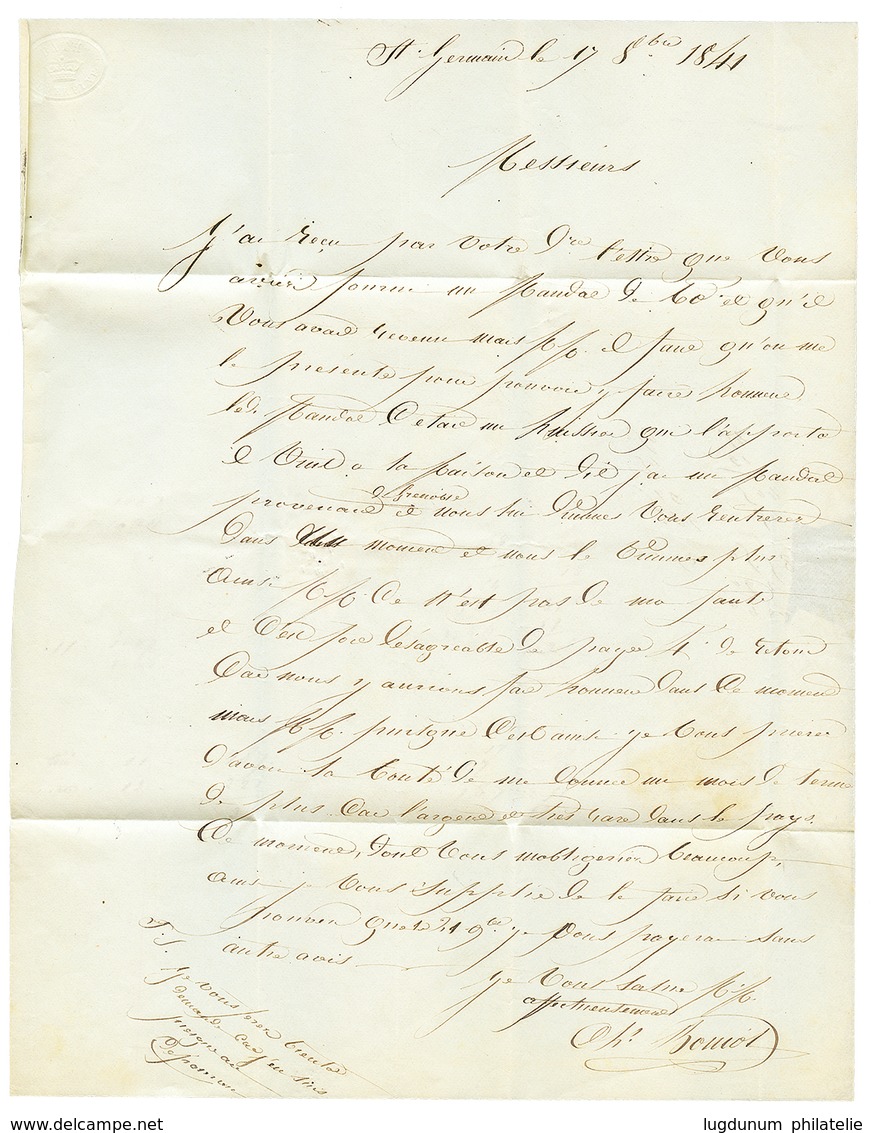 St Germain le 17 8bre 1841
Messieurs
J'ai reçu par votre Dre lettre que vous
aviez fourni un Mandat de 60f et qu'il
Vous avait revenu mais MM. il faut qu'on me
le présente pour pouvoir y faire honneur
led. Mandat C'etait un huissier qui l'apporta
il Vint a la Maison et dit j'ai un Mandat
de Grenoble
provenant et nous lui dimmes Vous rentrerez
dans moment et nous le vimmes plus
Ainsi MM. Ce n'est pas de ma faute
et C'est fort désagreable de payer 4f de retour
Car nous y aurions fait honneur dans Ce moment
mais MM. puisque C'est ainsi je Vous prierez
d'avoir la bonté de me donner un mois de terme
de plus Car l'argent est très rare dans le pays
Ce moment, dont Vous m'obligerier beaucoup,
ainsi je Vous supplie de le faire si vous
pouver que le 21 9bre je Vous payerai sans
autre avis
je Vous salue MM.
affectueusement
Ch. Homiol
P.S. Je vous ferer bientot
demande car j'en suis
presque au
Dépourvu
www.delcampe.net
lugdunum philatelie